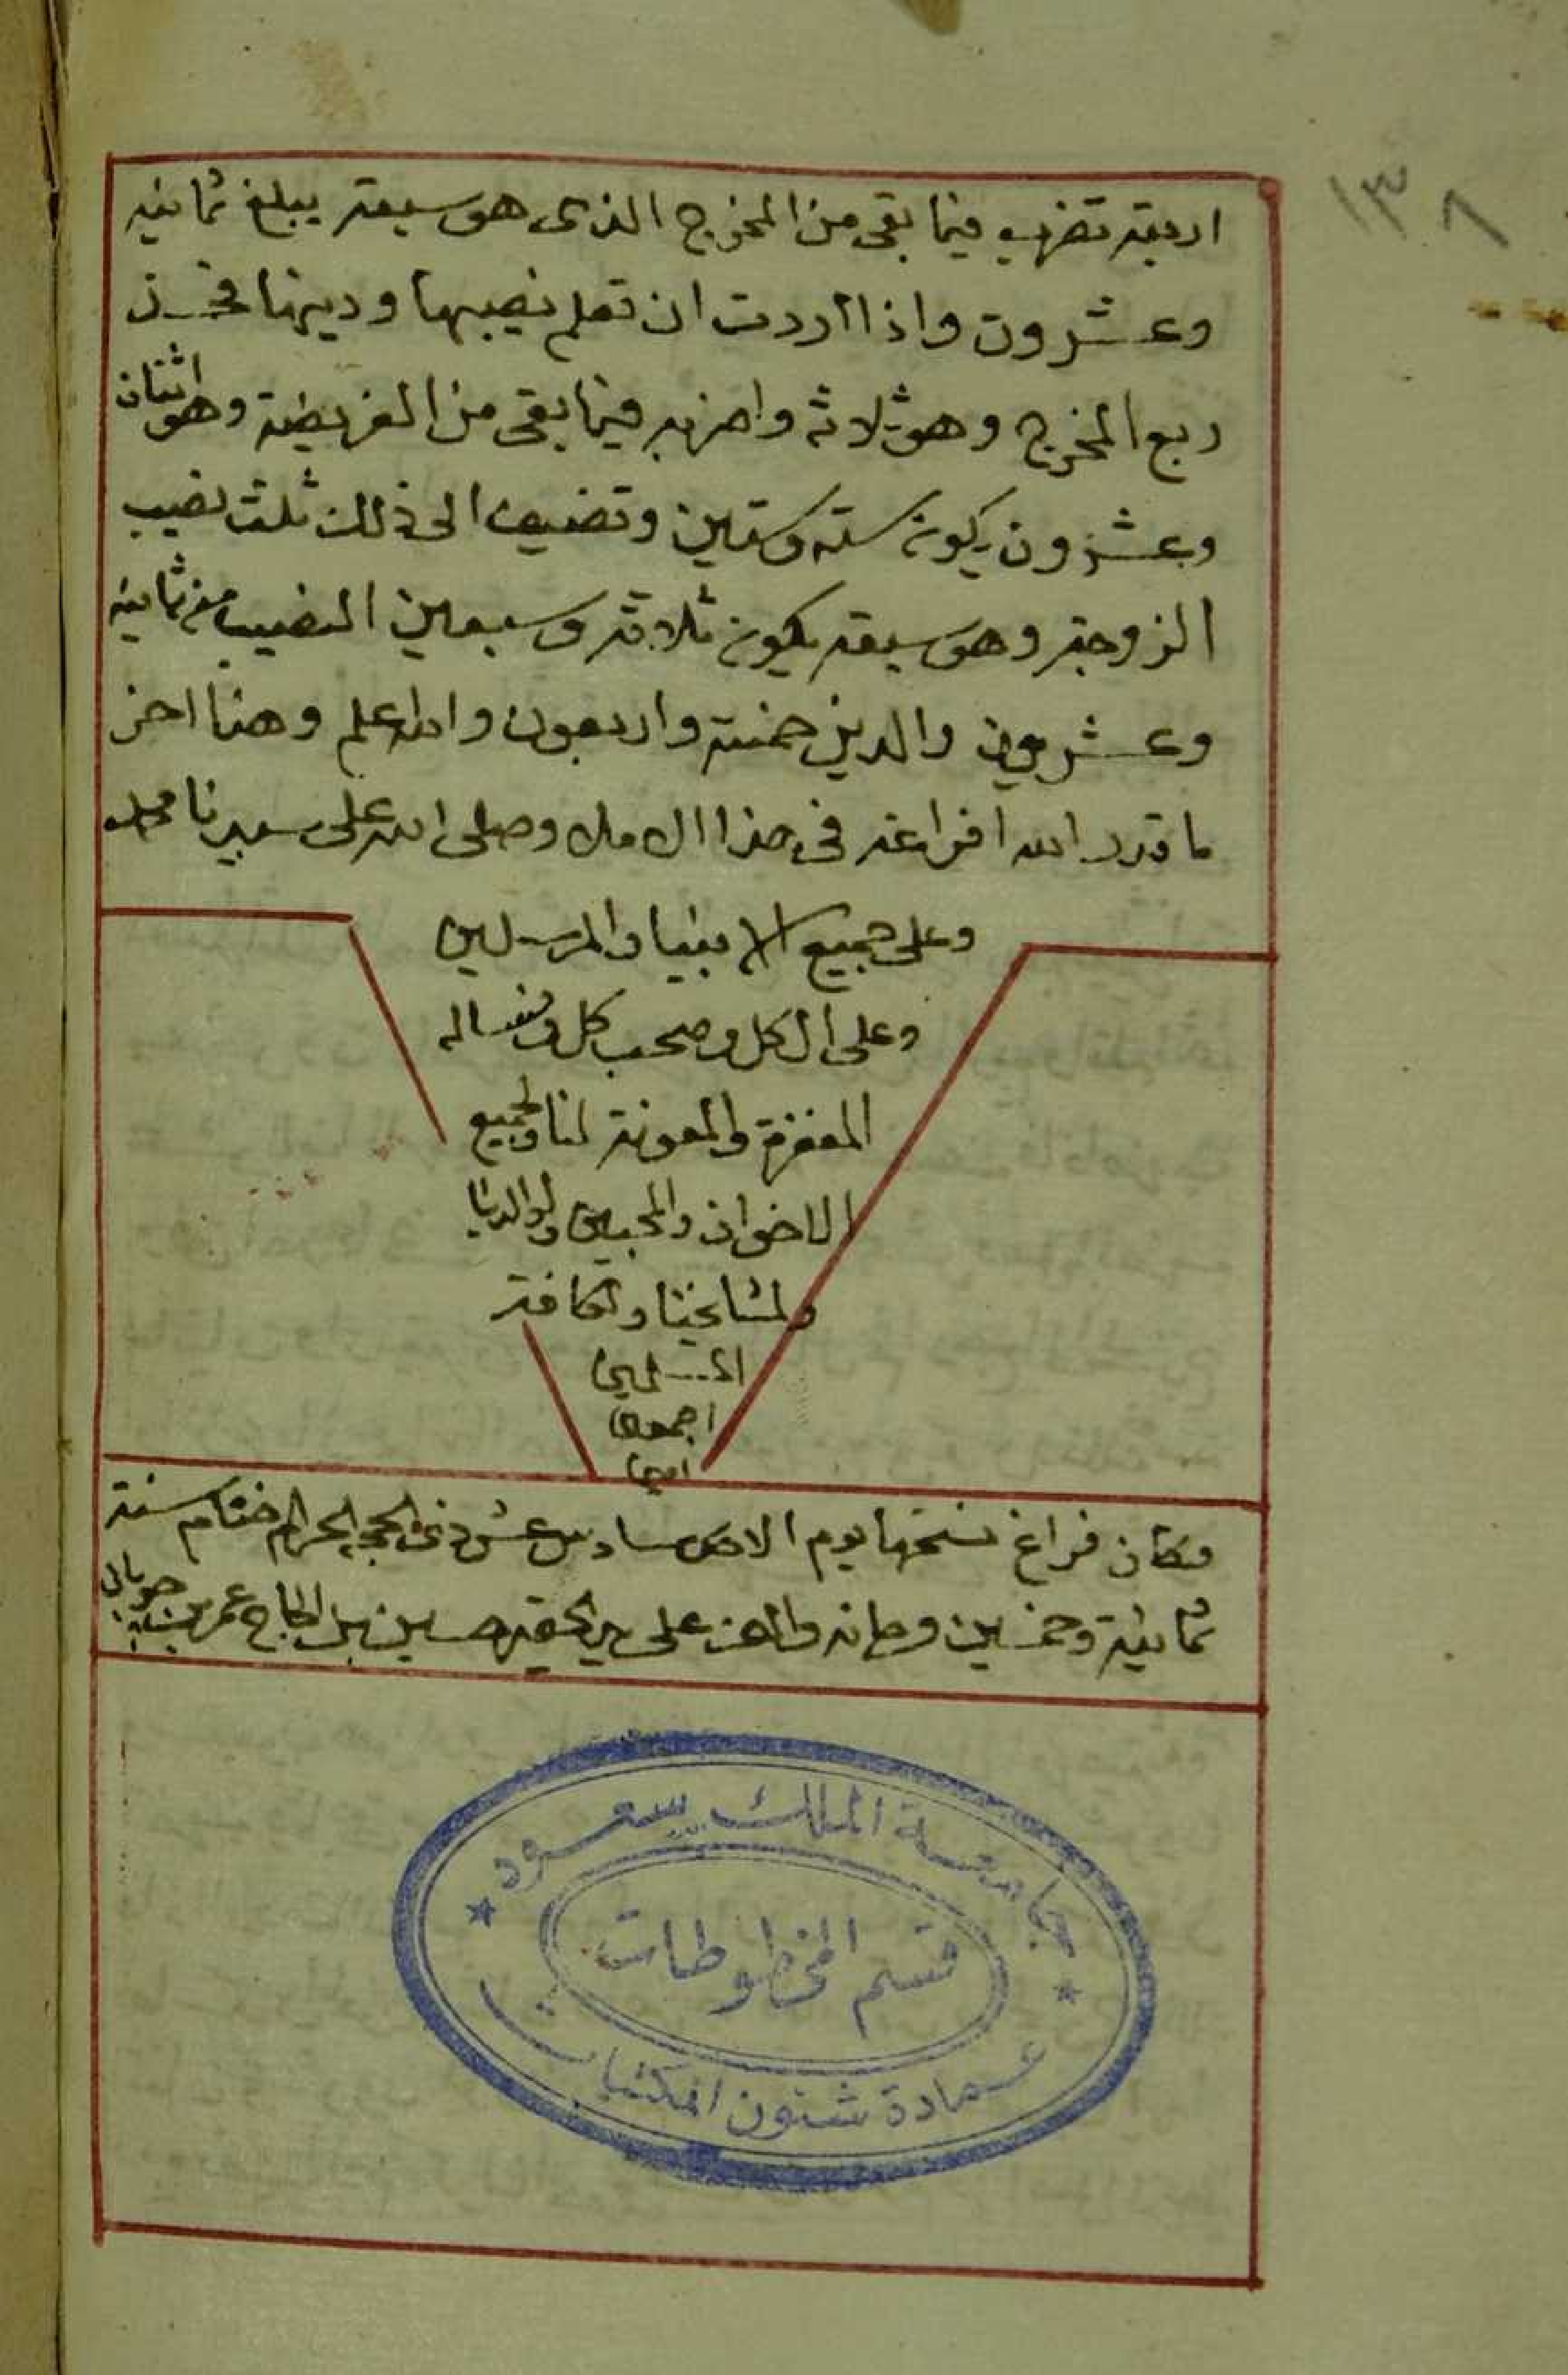 ١٣٨
اربعة تضرب فيما بقى من المخرج الذى هو سبعة يبلغ ثمانية
وعشرون واذا اردت ان تعلم نصيبها ودينها فخذ
ربع المخرج وهو ثلاثة واضربه فيما بقى من الفريضة وهو اثنان
وعشرون يكون ستة وستين وتضيف الى ذلك ثلث نصيب
الزوجة وهو سبعة يكون ثلاثة وسبعين النصيب منه ثمانية
وعشرين والدين خمسة واربعون والله اعلم وهنا اخر
ما قدر الله افراغه فى هذا الاملا وصلى الله على سيدنا محمد
وعلى جميع الانبيا والمرسلين
وعلى ال كل وصحب كل ونساله
المغفرة والمعونة لنا ولجميع
الاخوان والمحبين ولوالدينا
ولمشايخنا ولكافة
المسلمين
اجمعين
امين
وكان فراغ نسختها يوم الاحد سادس عشر ذى الحجة الحرام ختام سنة
ثمانية وخمسين ومائة والف على يد الحقير حسين بن الحاج عمر بن
جامعة الملك سعود
قسم المخطوطات
عمادة شئون المكتبات